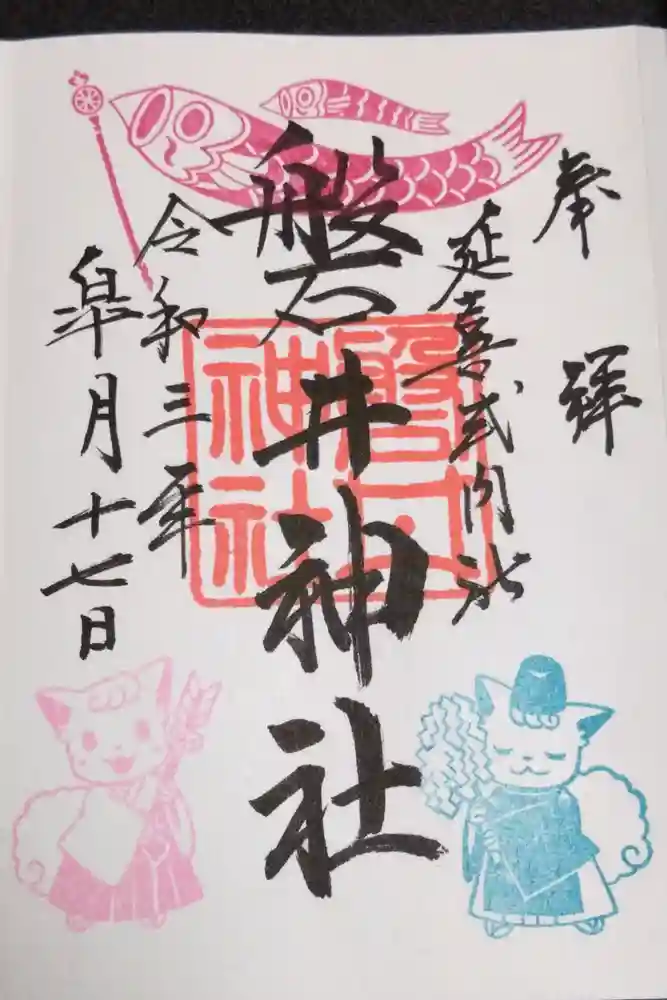 奉拝
延喜式内社
磐井神社
令和三年
皐月十七日
磐井
神社